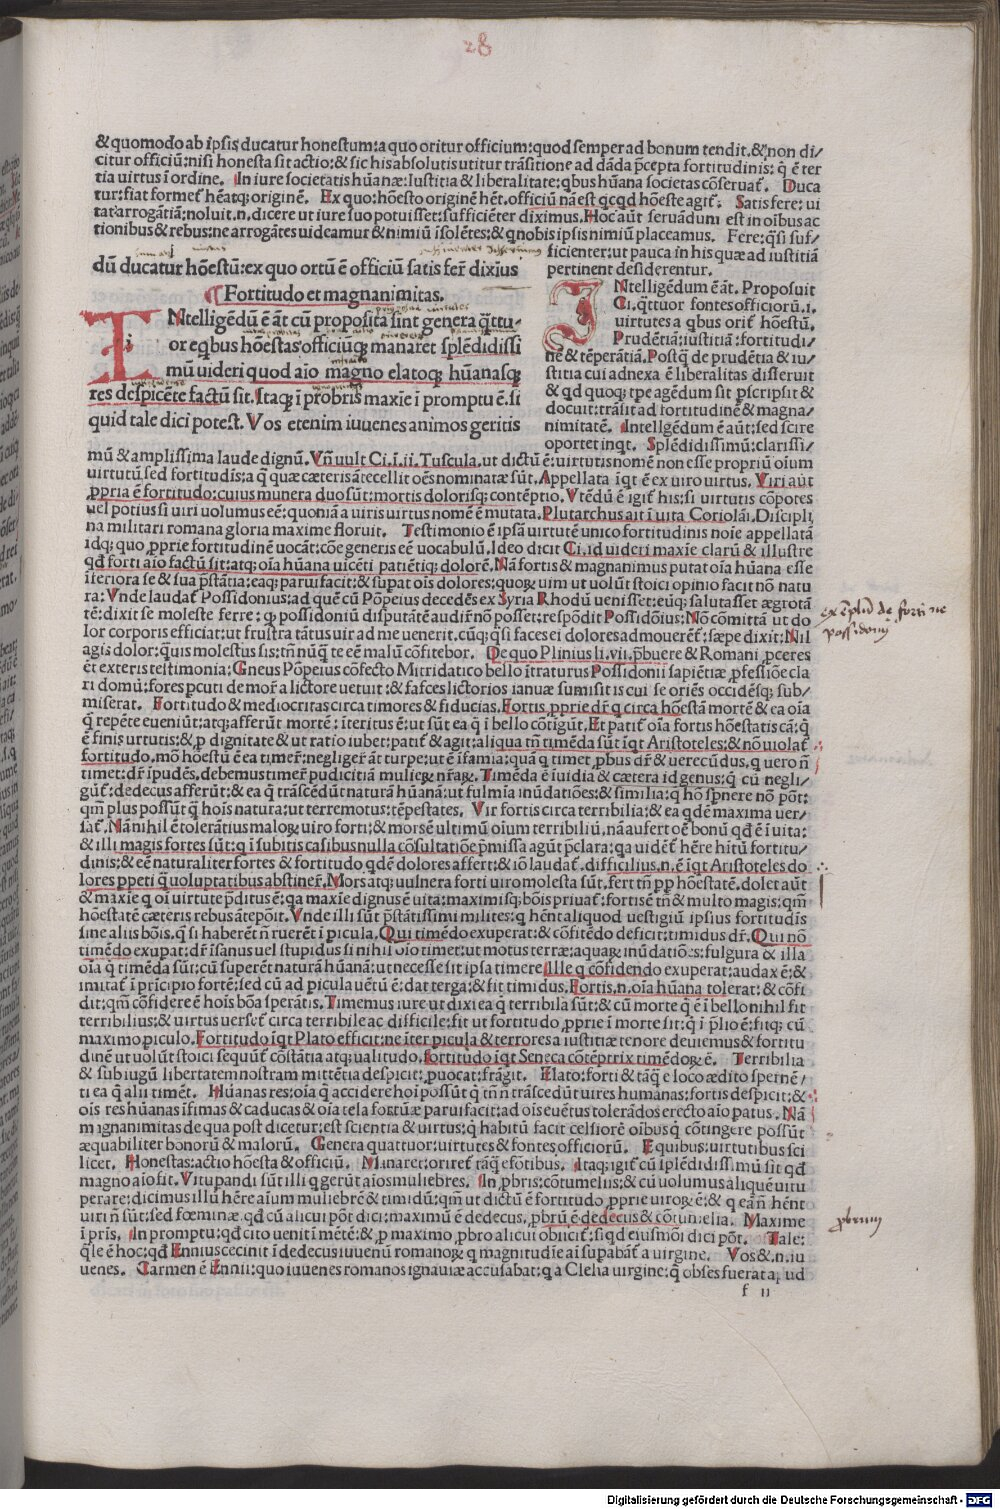 28
& quomodo ab ipsis ducatur honestum: a quo oritur officium: quod semper ad bonum tendit. & non di/
citur officiū: nisi honesta sit actio: & sic his absolutis utitur trāsitione ad dāda p̄cepta fortitudinis: q̄ ē ter
tia virtus ī ordine. In iure societatis hūanæ: Iustitia & liberalitate: qbus hūana societas cōseruat̄. Duca
tur: fiat formet̄ hēatq; originē. Ex quo: hōesto originē hēt. officiū nā est qcqd hōeste agit̄. Satis fere: ui
tat arrogātiā: noluit .n. dicere ut iure suo potuisset: sufficiēter diximus. Hoc aūt seruādum est in oibus ac
tionibus & rebus: ne arrogātes uideamur & nimiū isolētes: & q nobis ipsis nimiū placeamus. Fere: q̄si suf/
ficienter: ut pauca in his quæ ad iustitiā
pertinent desiderentur.
dū ducatur hōestū: ex quo ortū ē officiū satis fer̄ dixius
Fortitudo et magnanimitas.
INtelligēdū ē āt cū proposita sint genera q̄ttu-
or eqbus hōestas officiūq; manaret splēdidissi
mū uideri quod aio magno elatoq; hūanasq;
res despicēte factū sit. Itaq; ī probris maxie ī promptu ē. si
quid tale dici potest. Vos etenim iuuenes animos geritis
INtelligēdum ē āt. Proposuit
Ci. q̄ttuor fontes officiorū .i.
uirtutes a qbus orit̄ hōestū.
Prudētia: iustitia: fortitudi/
ne & tēperātiā. Postq̄ de prudētia & iu/
stitia cui adnexa ē liberalitas disseruit
& qd quoq; tpe agēdum sit p̄scripsit &
docuit: trāsit ad fortitudinē & magna/
nimitatē. Intellgēdum ē aūt: sed scire
oportet inqt. Splēdidissimū: clarissi/
mū & amplissima laude dignū. Vn̄ uult Ci. ī .ii. Tuscula. ut dictū ē: uirtutis nomē non esse propriū oium
uirtutū sed fortitudis: a q̄ quæ cæteris ātecellit oēs nominatæ sūt. Appellata īqt ē ex uiro uirtus. Viri aūt
ppria ē fortitudo: cuius munera duo sūt: mortis dolorisq; contēptio. Vtēdū ē igit̄ his: si uirtutis cōpotes
uel potius si uiri volumus eē: quoniā a uiris uirtus nomē ē mutata. Plutarchus ait ī uita Coriolāi. Discipli
na militari romana gloria maxime floruit. Testimonio ē ipsā uirtutē unico fortitudinis noie appellatā
idq; quo pprie fortitudinē uocāt: cōe generis eē uocabulū. Ideo dicit Ci. id uideri maxie clarū & illustre
qd̄ forti aio factū sit: atq; oia hūana uicēti patiētiq; dolorē. Nā fortis & magnanimus putat oia hūana esse
īferiora se & sua p̄stātia: eaq; parui facit: & supat ois dolores: quoꝝ uim ut uolūt stoici opinio facit nō natu
ra: Vnde laudat̄ Possidonius: ad quē cū Pōpeius decedēs ex Syria Rhodū uenisset: eūq; salutasset ægrotā
tē: dixit se moleste ferre: q possidoniū disputātē audir̄ nō posset: respōdit Possidōius: Nō cōmittā ut do
lor corporis efficiat: ut frustra tātus uir ad me uenerit. cūq; q̄si faces ei dolores admouerēt̄: sæpe dixit: Nil
agis dolor: quis molestus sis: tn̄ nūq̄ te eē malū cōfitebor. De quo Plinius li. vii. p̄buere & Romani pceres
et exteris testimonia: Gneus Pōpeius cōfecto Mitridatico bello ītraturus Possidonii sapiētiæ pfessiōe cla
ri domū: fores pcuti de mor̄ a lictore uetuit: & fasces lictorios ianuæ sumisit is cui se oriēs occidēsq; sub/
miserat. Fortitudo & mediocritas circa timores & fiducias. Fortis pprie dr̄ q circa hōestā mortē & ea oia
q̄ repēte eueniūt: atq; afferūt mortē: īteritus ē: ut sūt ea q̄ ī bello cōtigūt. Et patit̄ oia fortis hōestatis cā: q̄
ē finis urtutis: & p dignitate & ut ratio iubet: patit̄ & agit: aliqua tn̄ timēda sūt īqt Aristoteles: & nō uiolat̄
fortitudo. mō hōestū ē ea timer̄: negliger̄ āt turpe: ut ē īfamia: quā q timet pbus dr̄ & uerecūdus. q uero n̄
timet: dr̄ īpudēs. debemus timer̄ pudicitiā mulieꝝ nr̄aꝝ. Timēda ē īuidia & cætera id genus: q̄ cū negli/
gūt̄: dedecus afferūt: & ea q̄ trāscēdūt naturā hūanā: ut fulmia inūdatiōes: & similia: q̄ hō spnere nō pōt:
qm̄ plus possūt q̄ hois natura: ut terremotus: tēpestates. Vir fortis circa terribilia: & ea qdē maxima uer/
sat̄. Nā nihil ē tolerātius maloꝝ uiro forti: & mors ē ultimū oium terribiliū. nā aufert oē bonū qd̄ ē ī uita:
& illi magis fortes sūt: q ī subitis casibus nulla cōsultatiōe p̄missa agūt p̄clara: qa uidēt̄ hēre hītū fortitu/
dinis: & eē naturaliter fortes & fortitudo qdē dolores affert: & iō laudat̄. difficilius .n. ē īqt Aristoteles do
lores ppeti q̄ uoluptatibus abstiner̄. Mors atq; uulnera forti uiro molesta sūt. fert tn̄ pp hōestatē. dolet aūt
& maxie q oi uirtute p̄ditus ē: qa maxie dignus ē uita: maximisq; bōis priuat̄: fortis ē tn̄ & multo magis: qm̄
hōestatē cæteris rebus ātepōit. Vnde illi sūt p̄stātissimi milites: q hēnt aliquod uestigiū ipsius fortitudis
sine aliis bōis. q̄ si haberēt n̄ ruerēt ī picula. Qui timēdo exuperat: & cōfitēdo deficit: timidus dr̄. Qui nō
timēdo exupat: dr̄ īsanus uel stupidus si nihil oio timet: ut motus terræ: aquaꝝ inūdatiōes: fulgura & illa
oia q̄ timēda sūt: cū superēt naturā hūanā: ut necesse sit ipsa timere. Ille q cōfidendo exuperat: audax ē: &
imitat̄ ī prīcipio fortē: sed cū ad picula uētū ē: dat terga: & fit timidus. Fortis .n. oia hūana tolerat: & cōfi
dit: qm̄ cōfidere ē hois bōa sperātis. Timemus iure ut dixi ea q̄ terribila sūt: & cū morte q̄ ē ī bello nihil fit
terribilius: & uirtus uerset̄ circa terribile ac difficile: fit ut fortitudo pprie ī morte sit: q̄ ī p̄lio ē: fitq; cū
maximo piculo. Fortitudo īqt Plato efficit: ne īter picula & terrores a iustitiæ tenore deuiemus & fortitu
dinē ut uolūt stoici sequūt̄ cōstātia atq; ualitudo. fortitudo īqt Seneca cōtēptrix timēdoꝝ ē. Terribilia
& sub iugū libertatem nostram mittētia despicit: puocat: frāgit. Elato: forti & tāq̄ e loco ædito spernē/
ti ea q̄ alii timēt. Hūanas res: oia q̄ accidere hoi possūt q̄ tn̄ n̄ trāscedūt uires humanas: fortis despicit: &
ois res hūanas īfimas & caducas & oia tela fortūæ parui facit: ad ois euētus tolerādos erecto aio patus. Nā
mignanimitas de qua post dicetur: est scientia & uirtus: q̄ habitū facit celsiorē oibus q̄ cōtingere possūt
æquabiliter bonorū & malorū. Genera quattuor: uirtutes & fontes officiorū. Equibus: uirtutibus sci
licet. Honestas: actio hōesta & officiū. Manaret: oriret̄ tāq̄ e fōtibus. Itaq; igit̄ cū splēdidissimū sit qd̄
magno aio fit. Vitupandi sūt illi q gerūt aios muliebres. In pbris: cōtumeliis: & cū uolumus aliquē uitu
perare: dicimus illū hēre aium muliebrē & timidū: qm̄ ut dictū ē fortitudo pprie uiroꝝ ē: & q eā n̄ hēnt
uiri n̄ sūt: sed fœminæ. qd̄ cū alicui pōt dici: maximū ē dedecus. pbrū ē dedecus & cōtumelia. Maxime
ī pris. In promptu: qd̄ cito uenit ī mētē: & p maximo pbro alicui obiicit̄: si qd eiusmōi dici pōt. Tale:
q̄le ē hoc: qd̄ Ennius cecinit ī dedecus iuuenū romanoꝝ q magnitudīe ai supabāt̄ a uirgine. Vos & .n. iu
uenes. Carmen ē Ennii: quo iuuenes romanos ignauiæ accusabat: q a Clelia uirgine: q̄ obses fuerat a, ud
f ii
possidonij
Digitalisierung gefördert durch die Deutsche Forschungsgemeinschaft -
DFG